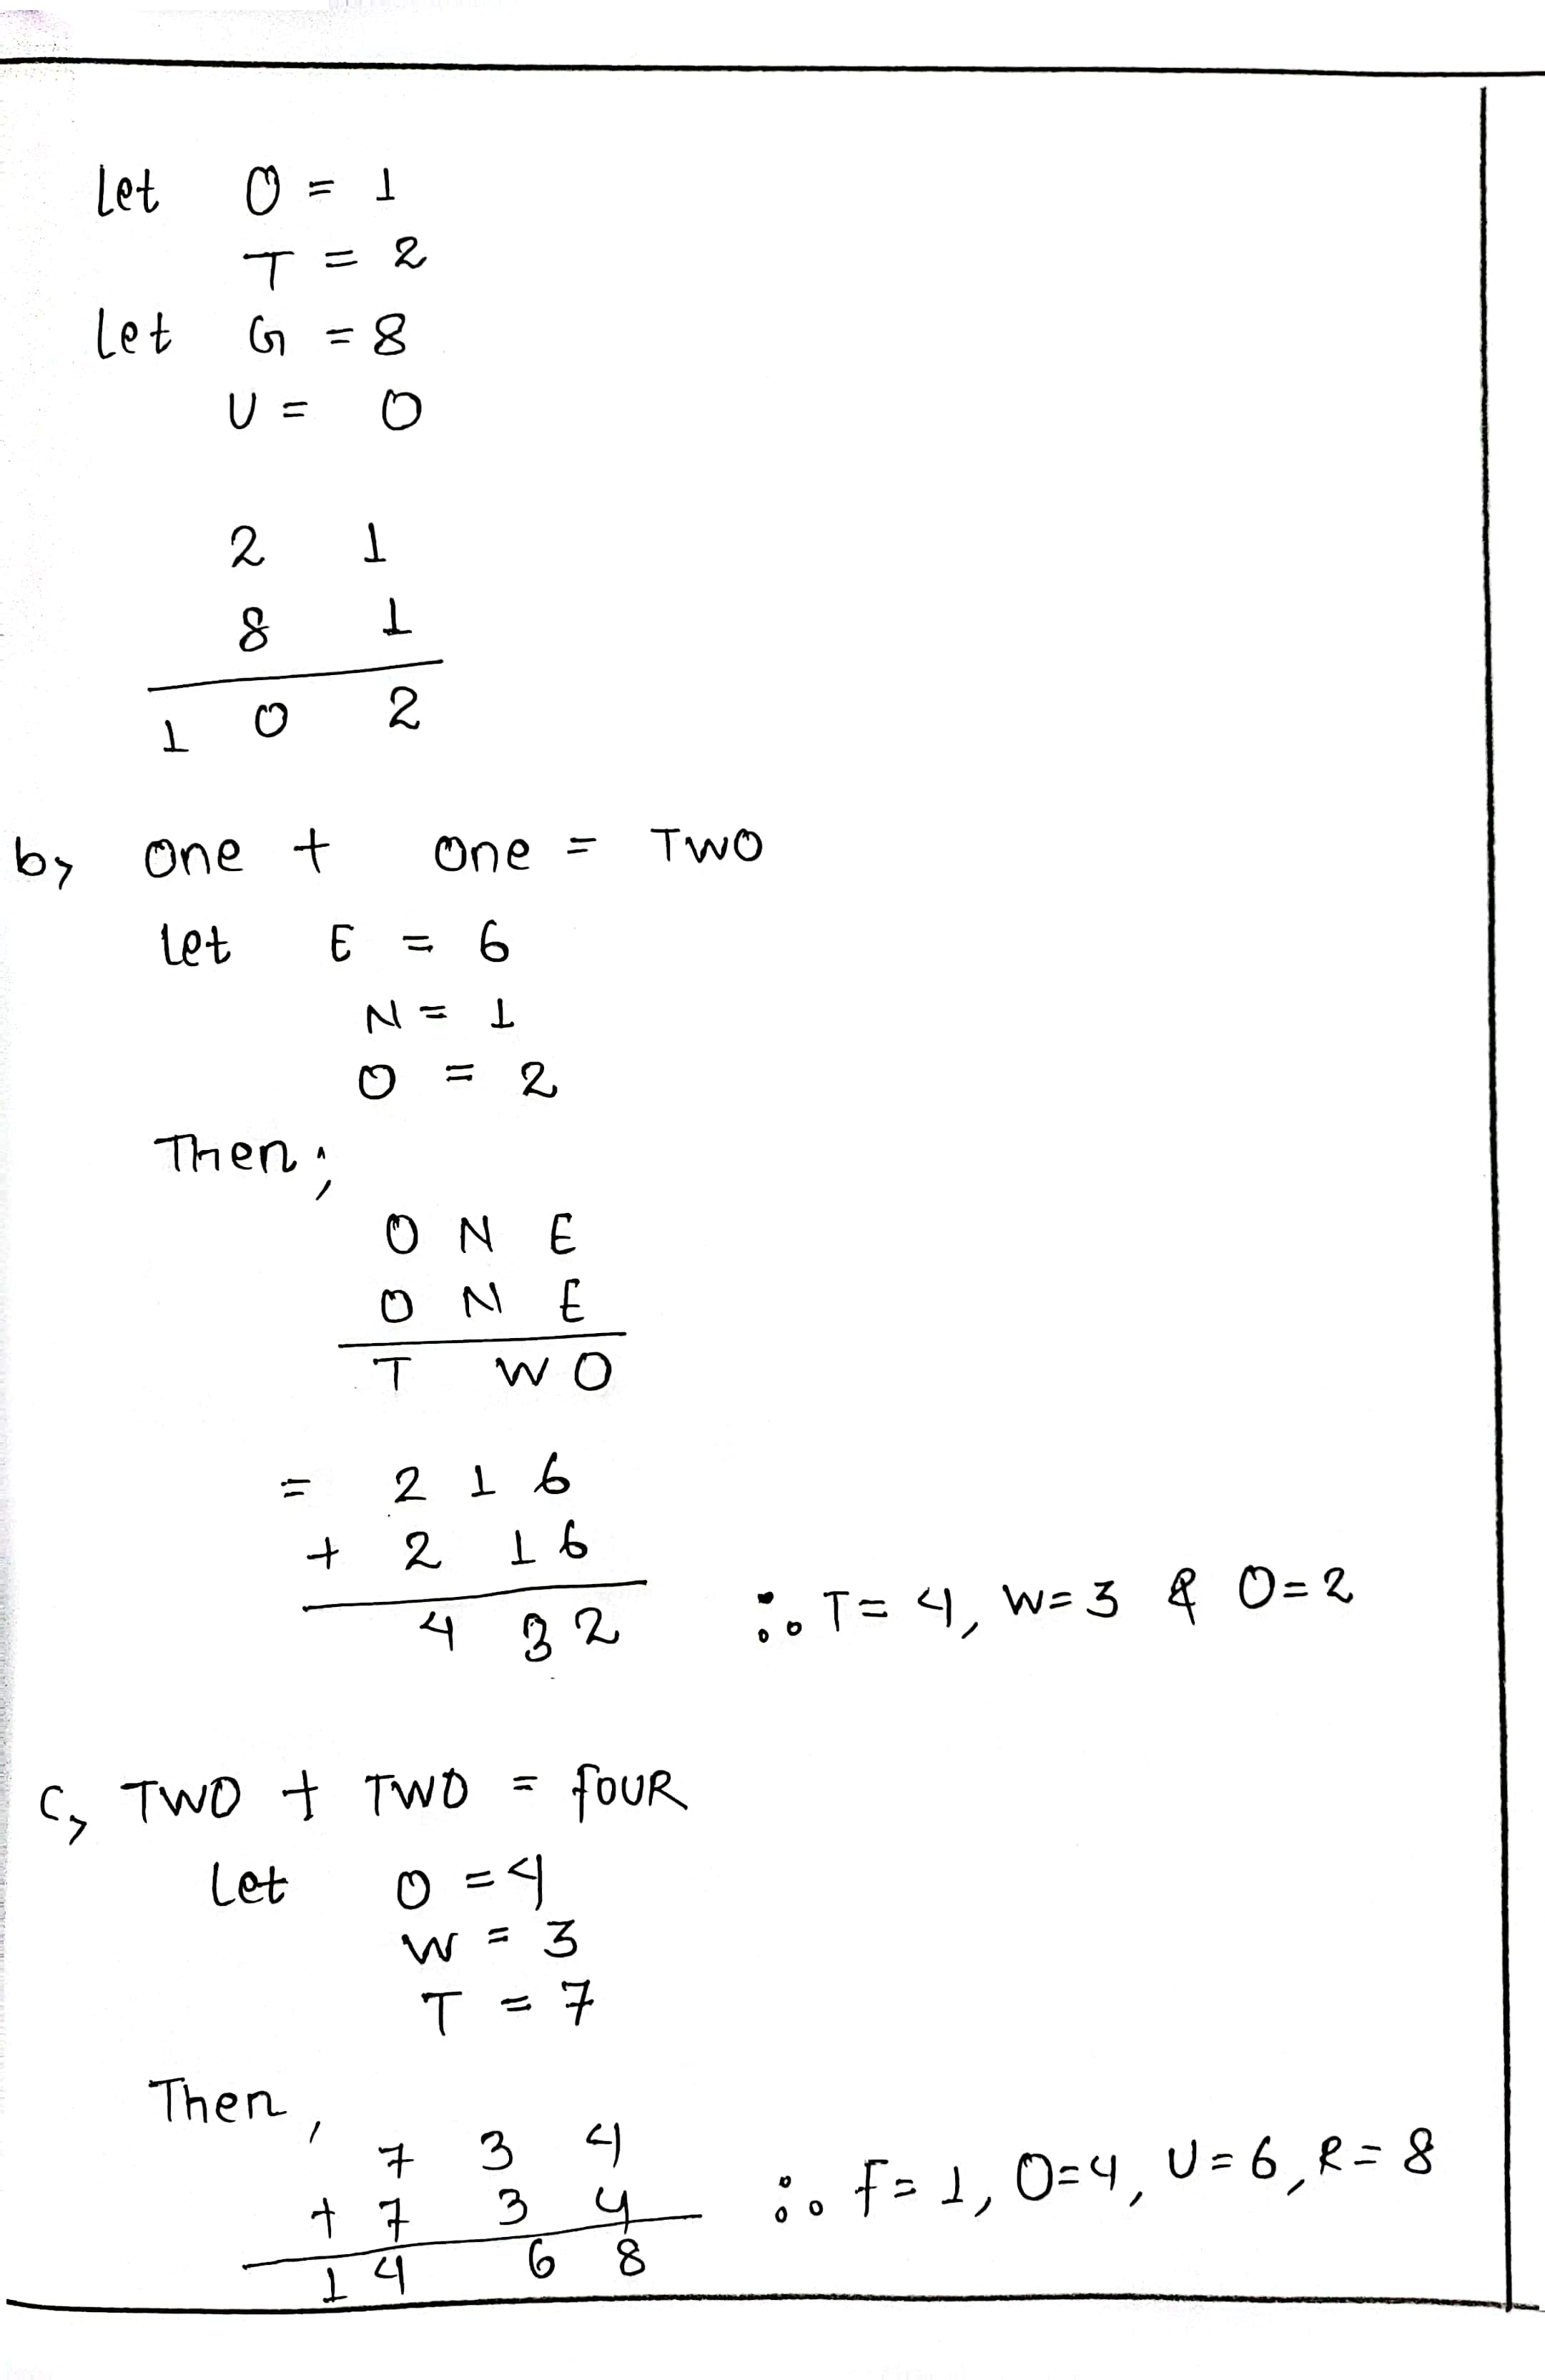 Let O = 1
T = 2
Let G = 8
U = 0
2 1
8 1
1 0 2
b, One + One = TWO
Let E = 6
N = 1
O = 2
Then;
O N E
O N E
T W O
= 2 1 6
+ 2 1 6
4 3 2 ∴ T = 4, W = 3 & O = 2
C, TWO + TWO = FOUR
Let O = 4
W = 3
T = 7
Then,
7 3 4
+ 7 3 4 ∴ F = 1, O = 4, U = 6, R = 8
1 4 6 8